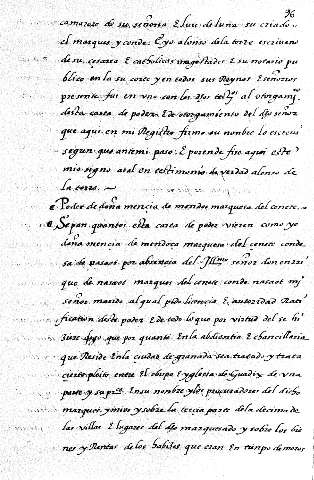 96
camarero de su señoria E luis de luna su criado
el marques y conde. E yo alonso de la torre escrivano
de su cesarea E catholicas magestades E su notario pu
blico en la su corte y en todos sus Reynos E señorios
presente fui en vno con los dhos testigos al otorgami.
desta carta de poder E de otorgamiento del dho señor
que aqui en mi Registro firmo su nonbre lo escreui
segun que ante mi paso. E porende fize aqui este
mio signo atal en testimonio de verdad alonso de
la torre.
Poder de doña mencia de mendoça marquesa del cenete.
Sepan quantos esta carta de poder vieren como yo
doña mencia de mendoça marquesa del cenete conde
sa de nasaot por absencia del Illmo señor don enrri
que de nasaot marques del cenete conde nasaot mi
señor marido al qual pido licencia E autoridad Rati
ficacion deste poder E de todo lo que por virtud del se hi
ziere digo que por quanto En la abdiencia E chancilleria
que Reside En la ciudad de granada sea tratado y trata
cierto pleito entre El obispo E yglesia de Guadix de vna
parte y su pte En su nonbre y los procuradores del dicho
marques y mios y sobre la tercia parte de la dezima de
las villas E lugares del dho marquesado y sobre los bie
nes y Rentas de los habizes que eran En tienpo de moros